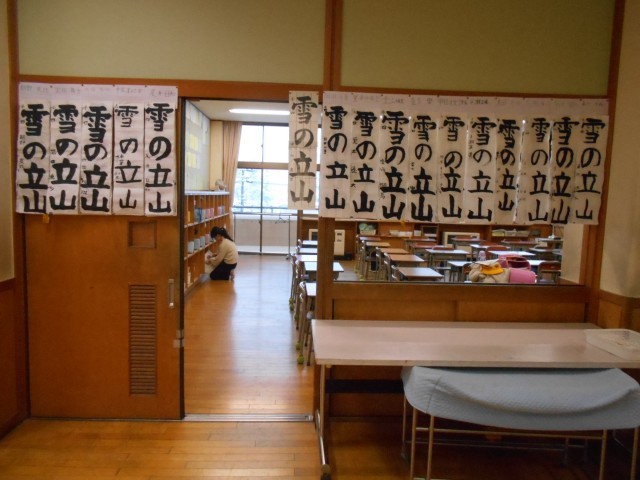 雪の立山
雪の立山
雪の立山
雪の立山
雪の立山
雪の立山
雪の立山
雪の立山
雪の立山
雪の立山
雪の立山
雪の立山
雪の立山
雪の立山
雪の立山
雪の立山